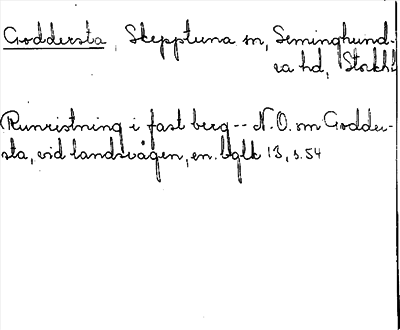 Goddersta, Skepptuna sn, Seminghund-
ra hd, Stockh.
Runristning i fast berg -- N.O. om Godder-
sta, vid landsvägen, en. bglk 13, s. 54